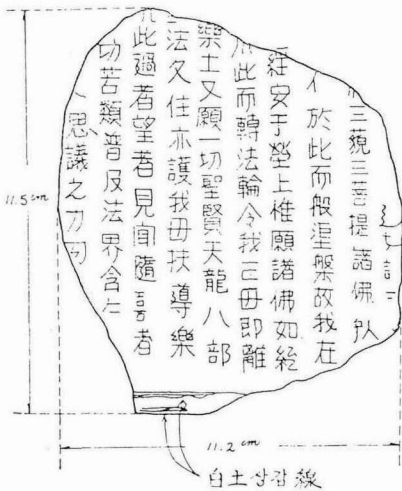 三藐三菩提諸佛
於此而般涅槃故我在
經安于塋上惟願諸佛如
此而轉法輪令我亡母即離
樂土又願一切聖賢天龍八部
法久住亦護我母扶導樂
此過者望者見聞隨喜者
切苦類普及法界含
思議之
11.5cm
11.2cm
白土상감線